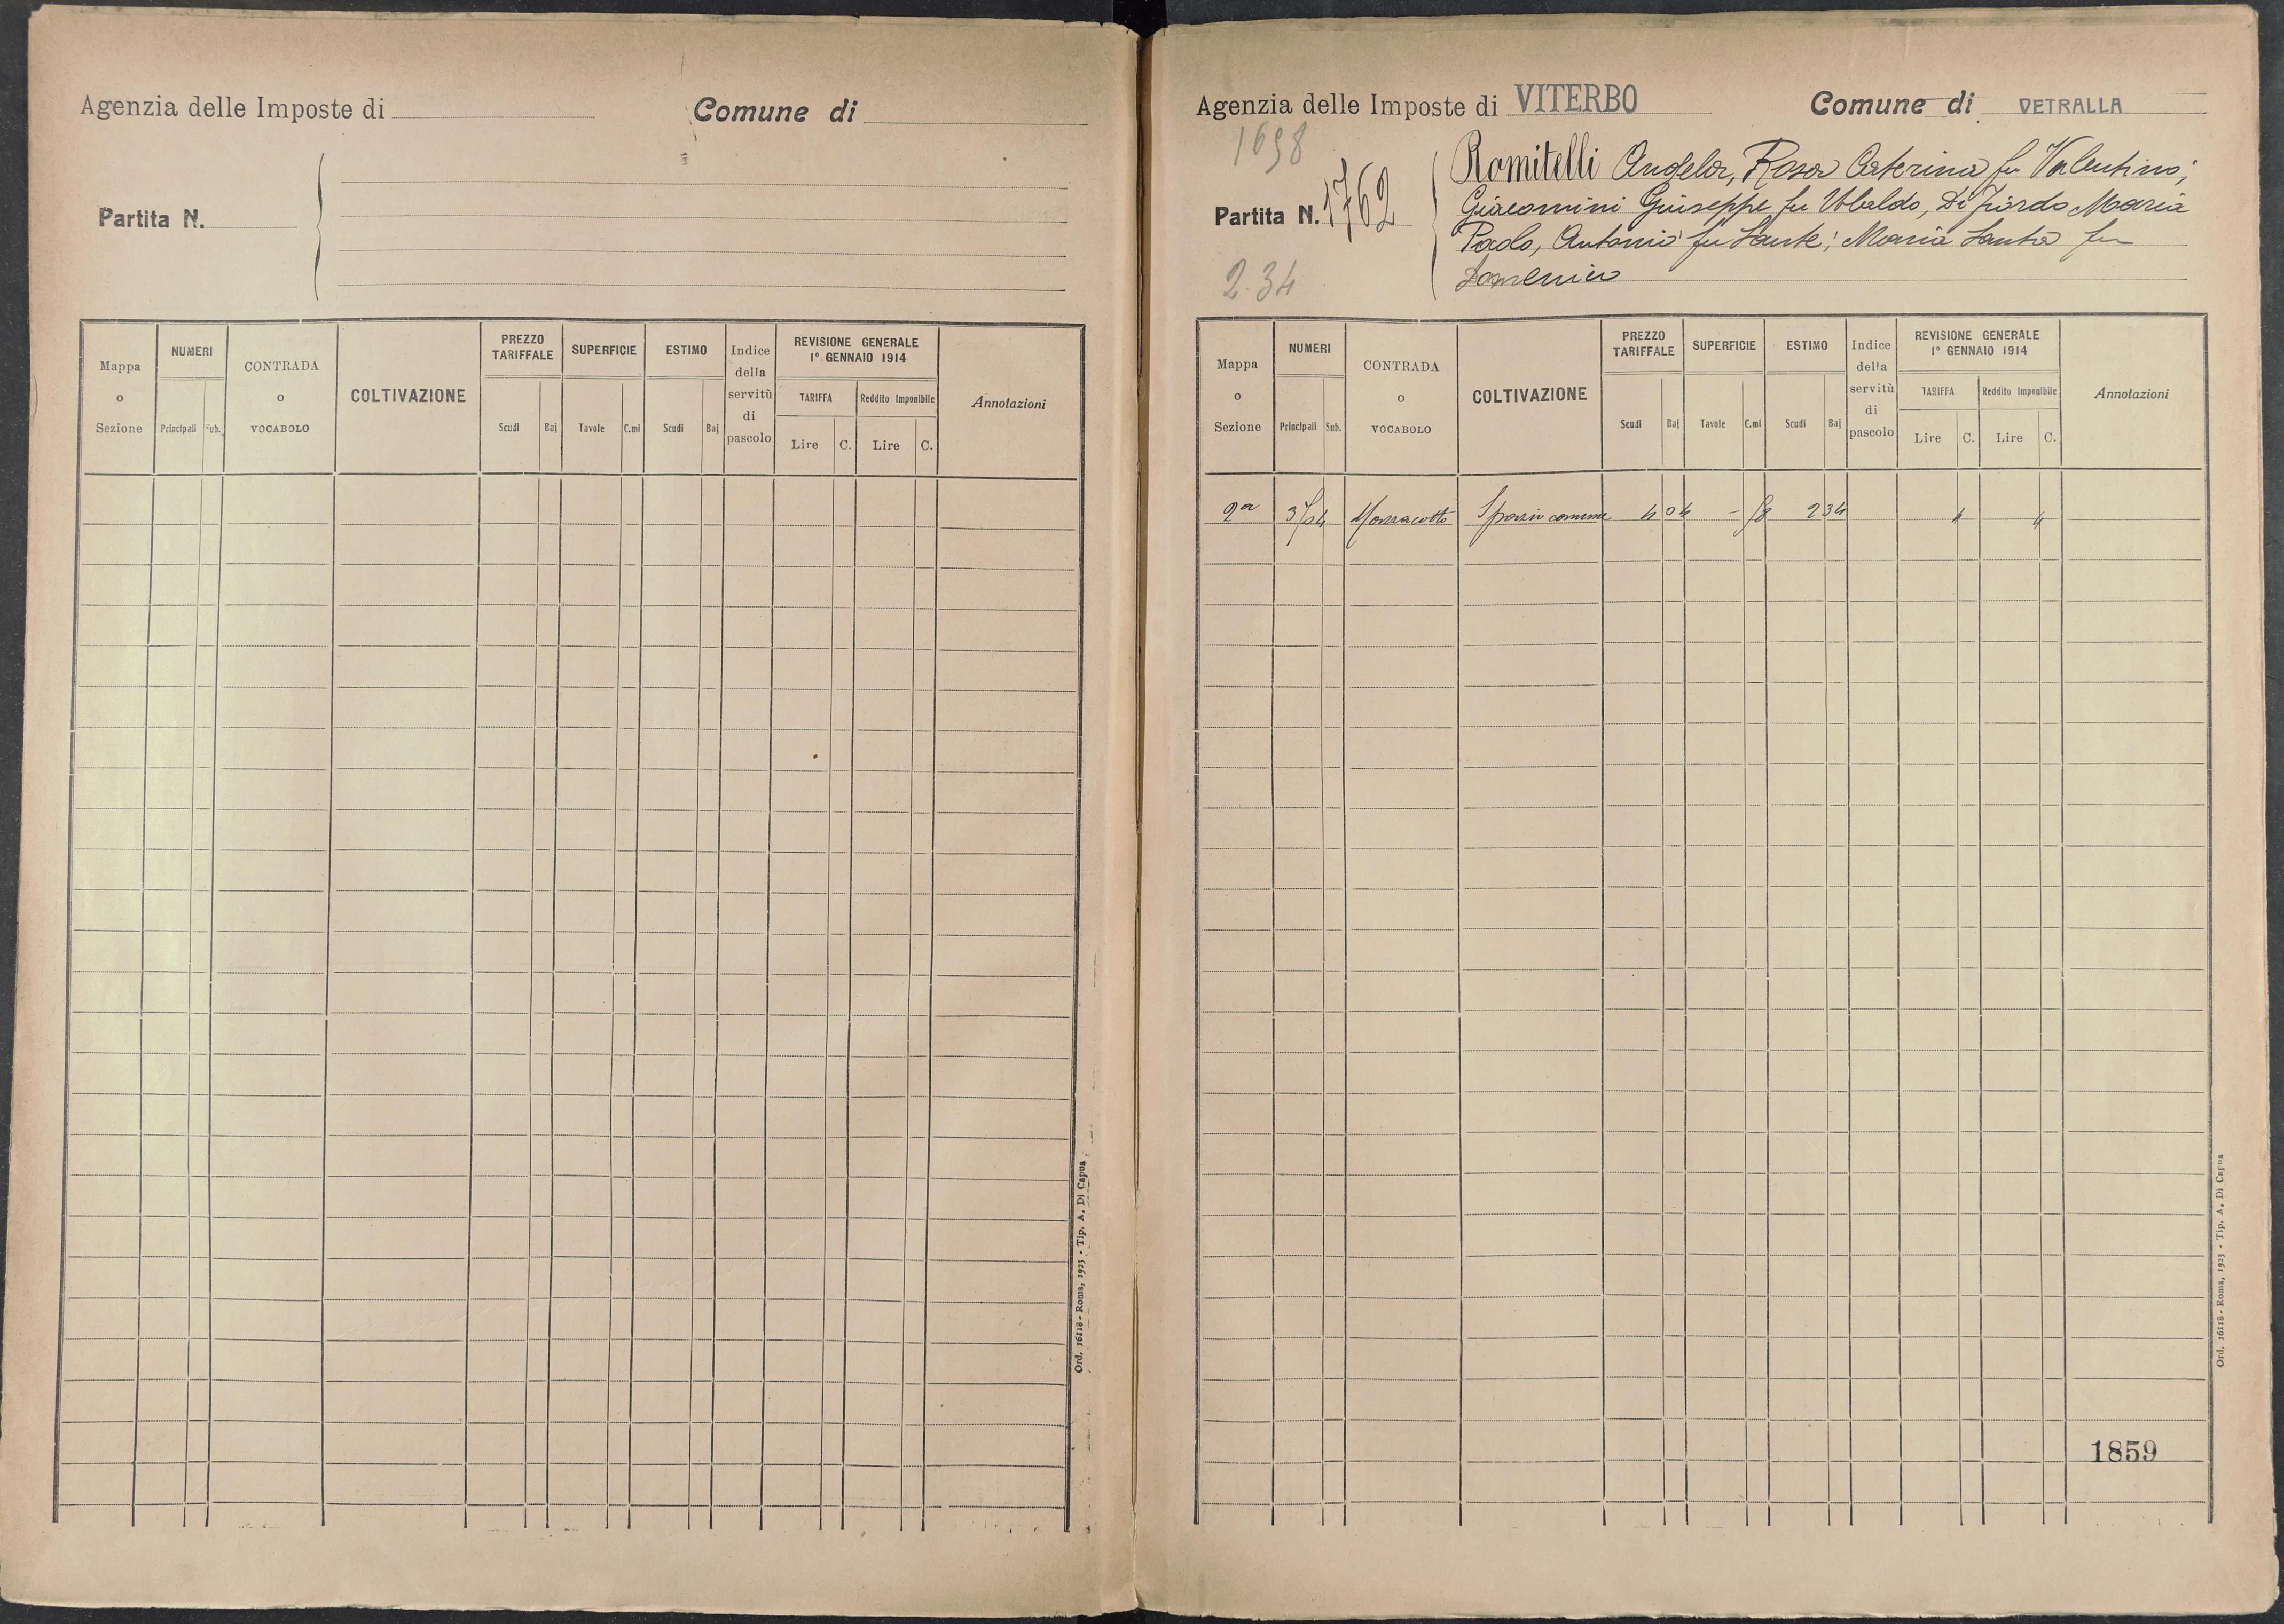 Agenzia delle Imposte di
Comune di
Partita N.
Mappa o Sezione
NUMERI
Principali
Sub.
CONTRADA o VOCABOLO
COLTIVAZIONE
PREZZO TARIFFALE
Scudi
Baj
SUPERFICIE
Tavole
C.mi
ESTIMO
Scudi
Baj
Indice della servitù di pascolo
REVISIONE GENERALE
1° GENNAIO 1914
TARIFFA
Lire
C.
Reddito Imponibile
Lire
C.
Annotazioni
Ord. 16118 - Roma, 1923 - Tip. A. Di Capua
Agenzia delle Imposte di VITERBO
Comune di VETRALLA
1698
Partita N. 1762
2.34
Romitelli Angela, Rosa Caterina fu Valentino;
Giacomini Giuseppe fu Ubaldo, Di Maria
Paolo, Antonio fu Sante; Maria Santa fu
Domenico
Mappa o Sezione
NUMERI
Principali
Sub.
CONTRADA o VOCABOLO
COLTIVAZIONE
PREZZO TARIFFALE
Scudi
Baj
SUPERFICIE
Tavole
C.mi
ESTIMO
Scudi
Baj
Indice della servitù di pascolo
REVISIONE GENERALE
1° GENNAIO 1914
TARIFFA
Lire
C.
Reddito Imponibile
Lire
C.
Annotazioni
2a Mazzacotto 4 04 - 2 34 " "
1859
Ord. 16118 - Roma, 1923 - Tip. A. Di Capua